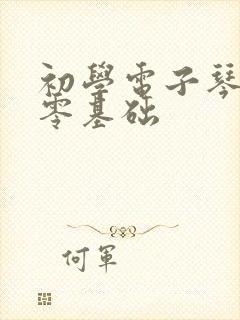 初學電子琴
零基础
何軍